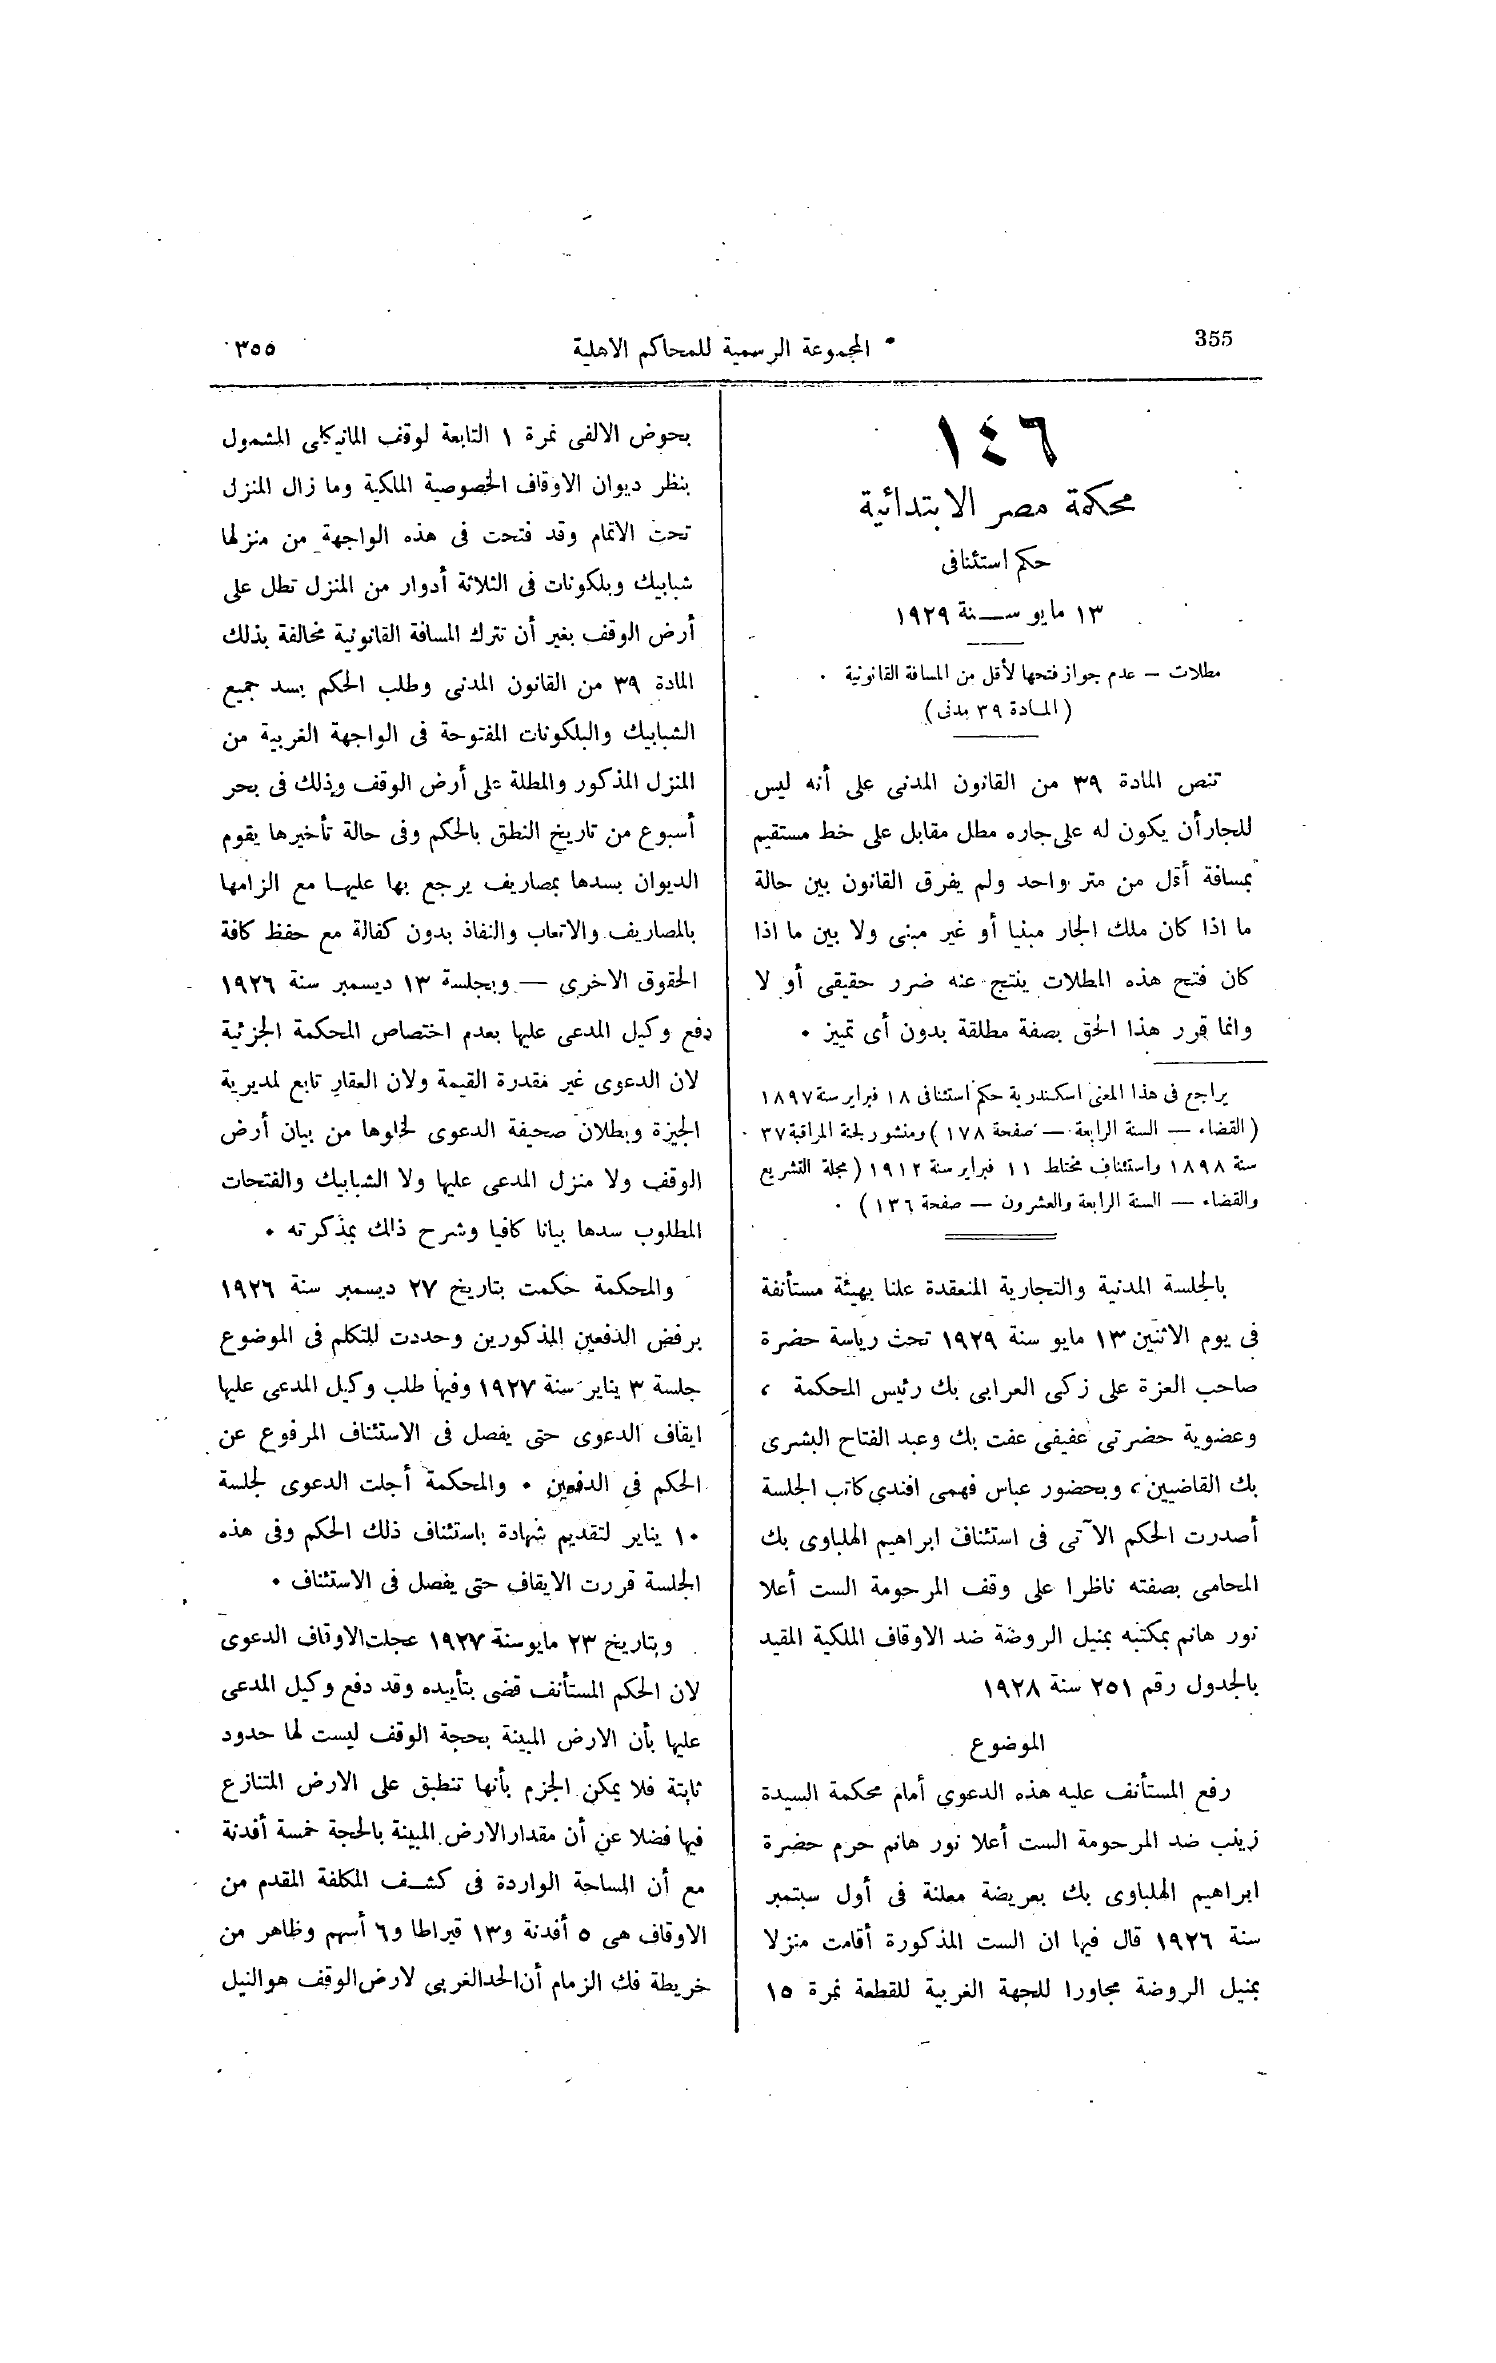 355
المجموعة الرسمية للمحاكم الاهلية
٣٥٥
١٤٦
محكمة مصر الابتدائية
حكم استئنافى
١٣ مايو ســنة ١٩٢٩
مطلات – عدم جواز فتحها لأقل من المسافة القانونية .
( المــادة ٣٩ مدنى )
تنص المادة ٣٩ من القانون المدنى على أنه ليس
للجار أن يكون له على جاره مطل مقابل على خط مستقيم
بمسافة أقل من متر واحد ولم يفرق القانون بين حالة
ما اذا كان ملك الجار مبنيا أو غير مبنى ولا بين ما اذا
كان فتح هذه المطلات ينتج عنه ضرر حقيقى أو لا
وانما قرر هذا الحق بصفة مطلقة بدون أى تمييز .
يراجع فى هذا المعنى اسكندرية حكم استئنافى ١٨ فبراير سنة ١٨٩٧
( القضاء – السنة الرابعة – صفحة ١٧٨ ) ومنشور لجنة المراقبة ٣٧
سنة ١٨٩٨ واستئناف مختلط ١١ فبراير سنة ١٩١٢ ( مجلة التشريع
والقضاء – السنة الرابعة والعشرون – صفحة ١٣٦ ) .
بالجلسة المدنية والتجارية المنعقدة علنا بهيئة مستأنفة
فى يوم الاثنين ١٣ مايو سنة ١٩٢٩ تحت رياسة حضرة
صاحب العزة على زكى العرابى بك رئيس المحكمة ،
وعضوية حضرتى عفيفى عفت بك وعبد الفتاح البشرى
بك القاضيين ، وبحضور عباس فهمى افندى كاتب الجلسة
أصدرت الحكم الآتى فى استئناف ابراهيم الهلباوى بك
المحامى بصفته ناظرا على وقف المرحومة الست أعلا
نور هانم بمكتبه بمنيل الروضة ضد الاوقاف الملكية المقيد
بالجدول رقم ٢٥١ سنة ١٩٢٨
الموضوع
رفع المستأنف عليه هذه الدعوى أمام محكمة السيدة
زينب ضد المرحومة الست أعلا نور هانم حرم حضرة
ابراهيم الهلباوى بك بعريضة معلنة فى أول سبتمبر
سنة ١٩٢٦ قال فيها ان الست المذكورة أقامت منزلا
بمنيل الروضة مجاورا للجهة الغربية للقطعة نمرة ١٥
بحوض الالفى نمرة ١ التابعة لوقف المانيكلى المشمول
بنظر ديوان الاوقاف الخصوصية الملكية وما زال المنزل
تحت الاتمام وقد فتحت فى هذه الواجهة من منزلها
شبابيك وبلكونات فى الثلاثة أدوار من المنزل تطل على
أرض الوقف بغير أن تترك المسافة القانونية مخالفة بذلك
المادة ٣٩ من القانون المدنى وطلب الحكم بسد جميع
الشبابيك والبلكونات المفتوحة فى الواجهة الغربية من
المنزل المذكور والمطلة على أرض الوقف وذلك فى بحر
أسبوع من تاريخ النطق بالحكم وفى حالة تأخيرها يقوم
الديوان بسدها بمصاريف يرجع بها عليهــا مع الزامها
بالمصاريف والاتعاب والنفاذ بدون كفالة مع حفظ كافة
الحقوق الاخرى – وبجلسة ١٣ ديسمبر سنة ١٩٢٦
دفع وكيل المدعى عليها بعدم اختصاص المحكمة الجزئية
لان الدعوى غير مقدرة القيمة ولان العقار تابع لمديرية
الجيزة وبطلان صحيفة الدعوى لخلوها من بيان أرض
الوقف ولا منزل المدعى عليها ولا الشبابيك والفتحات
المطلوب سدها بيانا كافيا وشرح ذلك بمذكرته .
والمحكمة حكمت بتاريخ ٢٧ ديسمبر سنة ١٩٢٦
برفض الدفعين المذكورين وحددت للتكلم فى الموضوع
جلسة ٣ يناير سنة ١٩٢٧ وفيها طلب وكيل المدعى عليها
ايقاف الدعوى حتى يفصل فى الاستئناف المرفوع عن
الحكم فى الدفعين . والمحكمة أجلت الدعوى لجلسة
١٠ يناير لتقديم شهادة باستئناف ذلك الحكم وفى هذه
الجلسة قررت الايقاف حتى يفصل فى الاستئناف .
وبتاريخ ٢٣ مايو سنة ١٩٢٧ عجلت الاوقاف الدعوى
لان الحكم المستأنف قضى بتأييده وقد دفع وكيل المدعى
عليها بأن الارض المبينة بحجة الوقف ليست لها حدود
ثابتة فلا يمكن الجزم بأنها تنطبق على الارض المتنازع
فيها فضلا عن أن مقدار الارض المبينة بالحجة خمسة أفدنة
مع أن المساحة الواردة فى كشــف المكلفة المقدم من
الاوقاف هى ٥ أفدنة و١٣ قيراطا و٦ أسهم وظاهر من
خريطة فك الزمام أن الحد الغربى لارض الوقف هو النيل